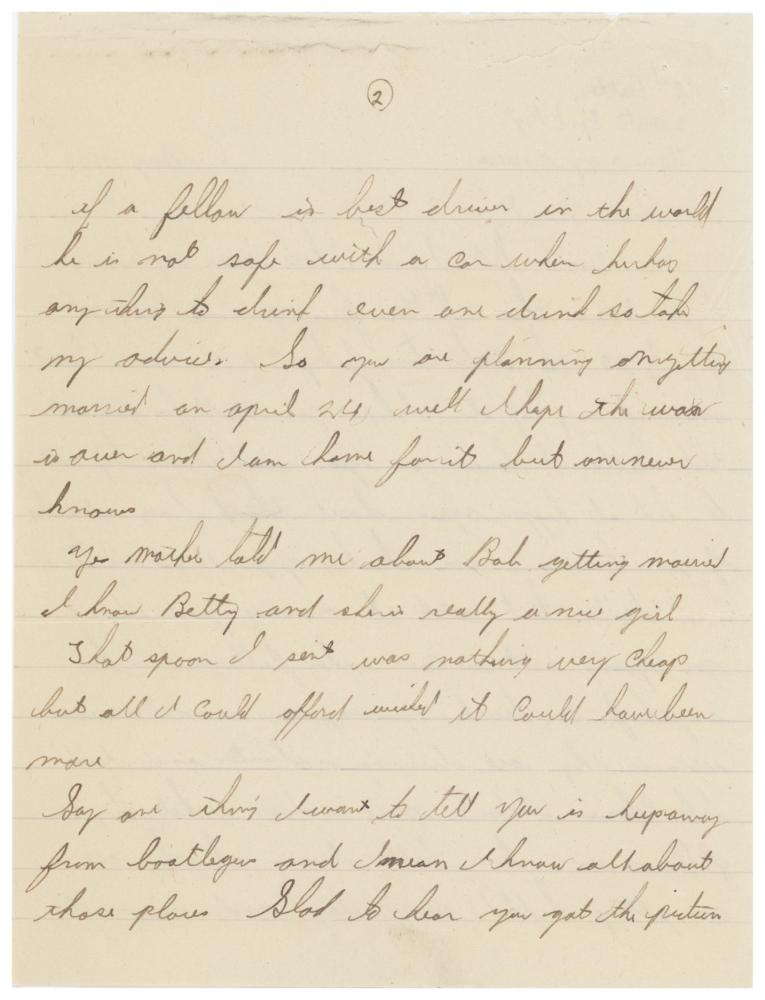 2
if a fellow is best driver in the world
he is not safe with a car when he has
any thing to drink even one drink so take
my advice. So you are planning on getting
married on april 24 well I hope the war
is over and I am home for it but one never
knows
Yes mother told me about Bob getting married
I know Betty and she is really a nice girl
That spoon I sent was nothing very cheap
but all I could afford wished it could have been
more
Say one thing I want to tell you is keep away
from bootlegers and I mean I know all about
those places Glad to hear you got the picture